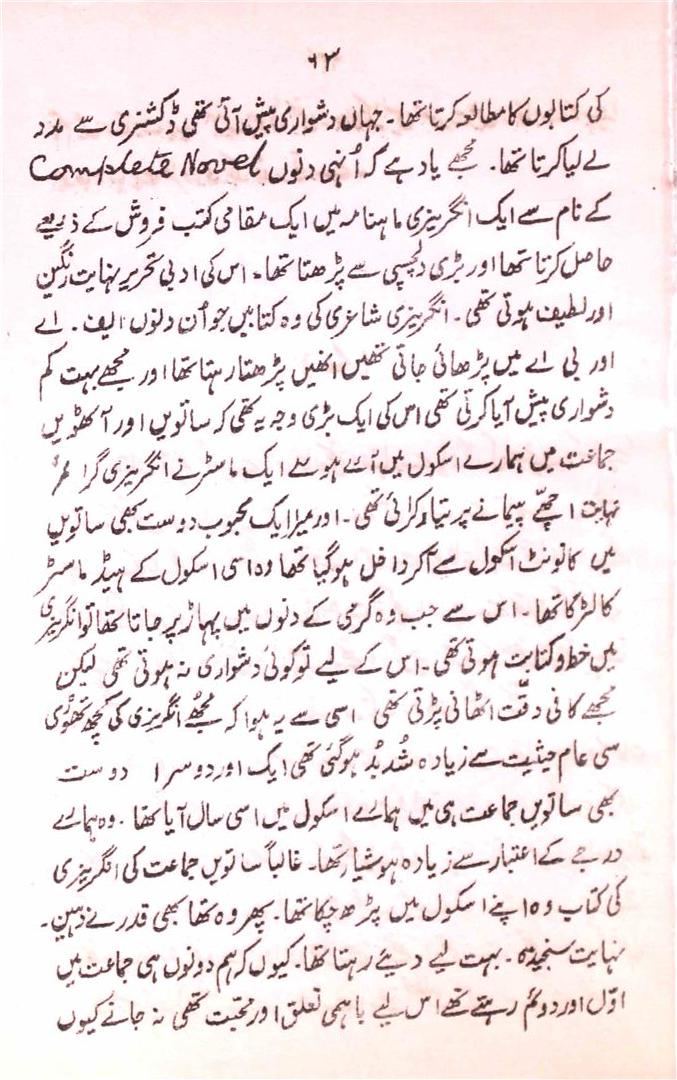 ۶۳
کی کتابوں کا مطالعہ کرتا تھا۔ جہاں دشواری پیش آتی تھی ڈکشنری سے مدد
لے لیا کرتا تھا۔ مجھے یاد ہے کہ اُنہی دنوں Complete Novel
کے نام سے ایک انگریزی ماہنامہ میں ایک مقامی کتب فروش کے ذریعے
حاصل کرتا تھا اور بڑی دلچسپی سے پڑھتا تھا۔ اس کی ادبی تحریر نہایت رنگین
اور لطیف ہوتی تھی۔ انگریزی شاعری کی وہ کتابیں جو اُن دنوں ایف۔ اے
اور بی اے میں پڑھائی جاتی تھیں انھیں پڑھتا رہتا تھا اور مجھے بہت کم
دشواری پیش آیا کرتی تھی اس کی ایک بڑی وجہ یہ تھی کہ ساتویں اور آٹھویں
جماعت میں ہمارے اسکول میں آئے ہوئے ایک ماسٹر نے انگریزی گرامر
نہایت اچھے پیمانے پر تیار کرائی تھی۔ اور میرا ایک محبوب دوست بھی ساتویں
میں کانونٹ اسکول سے آکر داخل ہوگیا تھا وہ اسی اسکول کے ہیڈ ماسٹر
کا لڑکا تھا۔ اس سے جب وہ گرمی کے دنوں میں پہاڑ پر جاتا تھا تو انگریزی
میں خط و کتابت ہوتی تھی۔ اس کے لیے تو کوئی دشواری نہ ہوتی تھی لیکن
مجھے کافی دقّت اٹھانی پڑتی تھی اسی سے یہ ہوا کہ مجھے انگریزی کی کچھ تھوڑی
سی عام حیثیت سے زیادہ شُدبُد ہوگئی تھی ایک اور دوسرا دوست
بھی ساتویں جماعت ہی میں ہمارے اسکول میں اسی سال آیا تھا۔ وہ ہمارے
درجے کے اعتبار سے زیادہ ہوشیار تھا۔ غالباً ساتویں جماعت کی انگریزی
کی کتاب وہ اپنے اسکول میں پڑھ چکا تھا۔ پھر وہ تھا بھی قدرے ذہین۔
نہایت سنجیدہ۔ بہت لیے دیئے رہتا تھا۔ کیوں کہ ہم دونوں ہی جماعت میں
اوّل اور دوئم رہتے تھے اس لیے باہمی تعلق اور محبت تھی نہ جانے کیوں